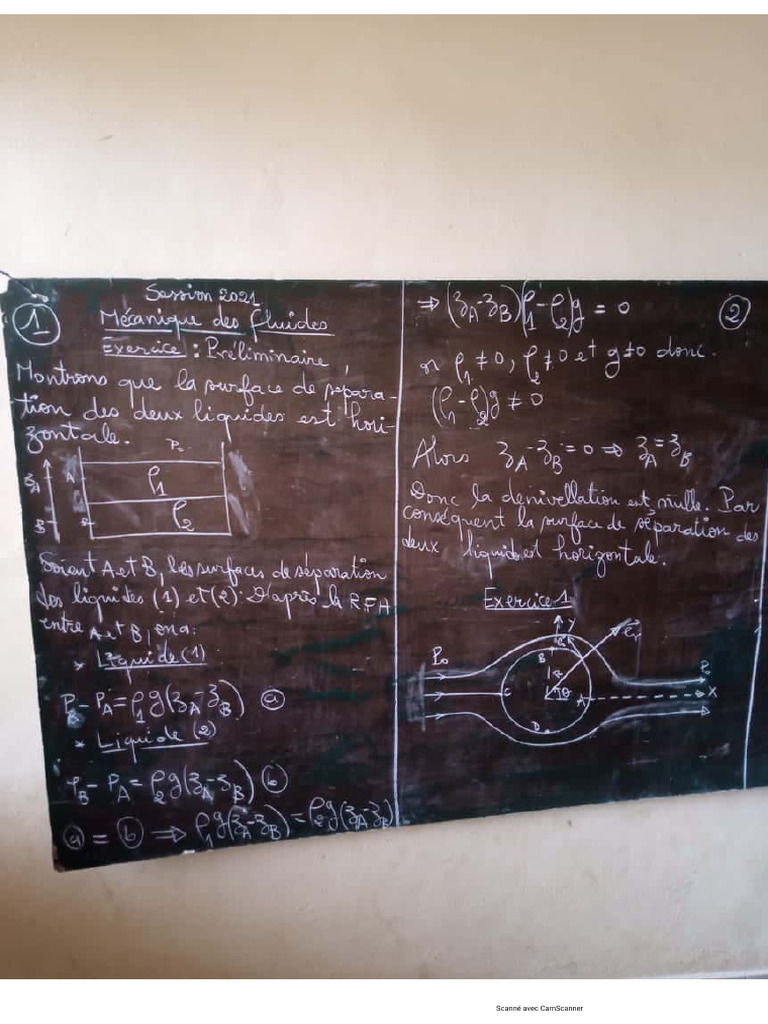 1
Session 2021
Mécanique des fluides
Exercice : Préliminaire
Montrons que la surface de sépara-
tion des deux liquides est hori-
zontale.
P₀
ʒA
A
ρ₁
B
ρ₂
Soient A et B, les surfaces de séparation
des liquides (1) et (2). D'après la R.F.A
entre A et B, on a:
* Liquide (1)
P_B - P_A = ρ₁g(ʒ_A - ʒ_B) (a)
* Liquide (2)
P_B - P_A = ρ₂g(ʒ_A - ʒ_B) (b)
(a) = (b) ⇒ ρ₁g(ʒ_A - ʒ_B) = ρ₂g(ʒ_A - ʒ_B)
⇒ (ʒ_A - ʒ_B)(ρ₁ - ρ₂)g = 0
2
ρ₁ ≠ 0, ρ₂ ≠ 0 et g ≠ 0 donc.
(ρ₁ - ρ₂)g ≠ 0
Alors ʒ_A - ʒ_B = 0 ⇒ ʒ_A = ʒ_B
Donc la dénivellation est nulle. Par
conséquent la surface de séparation des
deux liquides est horizontale.
Exercice 1
Y
P₀
B
R
θ
C
A
X
B₀
P₀
Scanné avec CamScanner